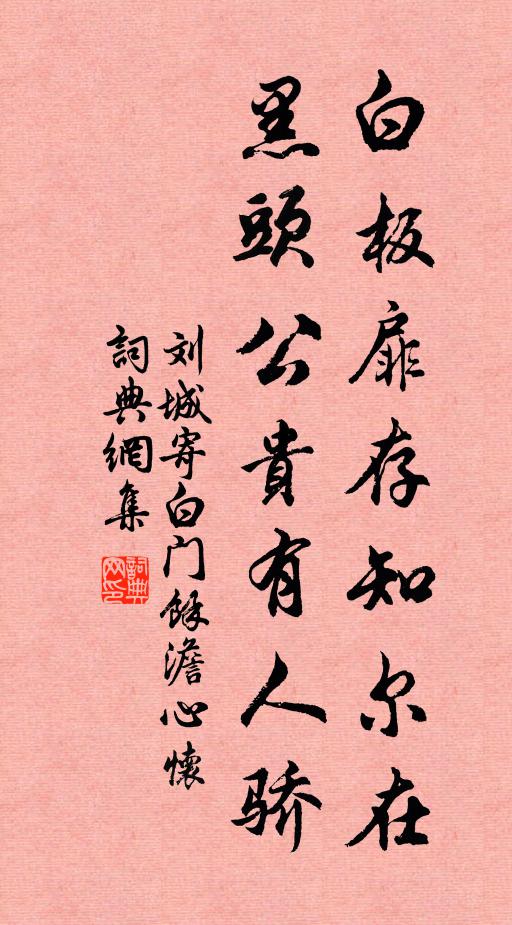 白板扉存知尔在
黑頭公貴有人骄
刘城寄白门餘澹心懷
詞典網集
詞典网印